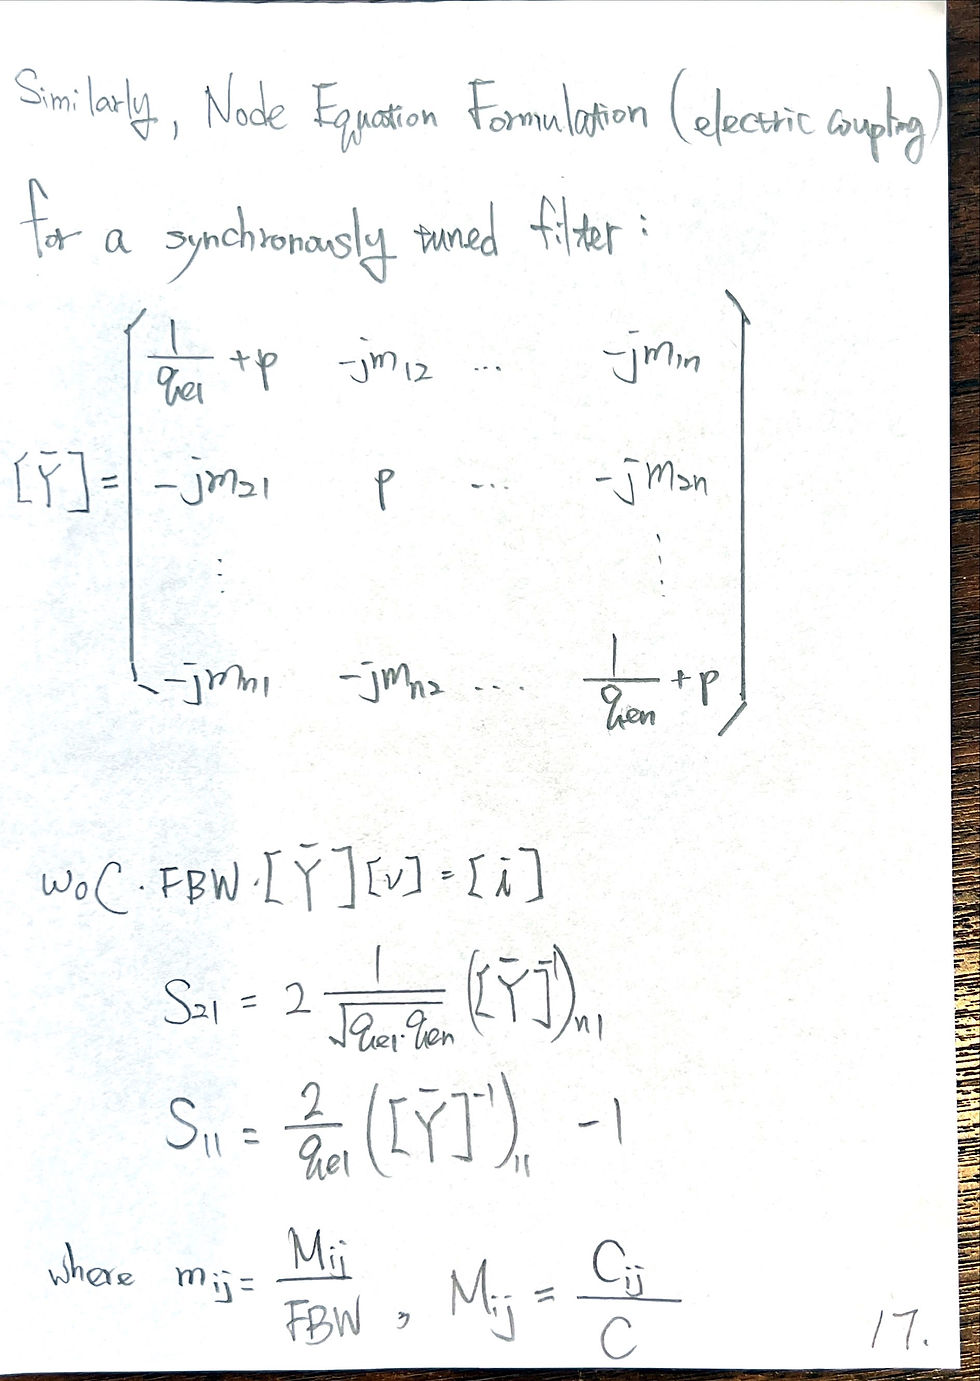 Similarly, Node Equation Formulation (electric coupling)
for a synchronously tuned filter:
[Ȳ] =
1/qe1 + p   -jm12   ...   -jm1n
-jm21   p   ...   -jm2n
⋮   ⋮
-jmn1   -jmn2   ....   1/qen + p
ω0C · FBW · [Ȳ][v] = [i]
S21 = 2 1/√(qe1·qen) ([Ȳ]⁻¹)n1
S11 = 2/qe1 ([Ȳ]⁻¹)11 - 1
where mij = Mij/FBW , Mij = Cij/C
17.